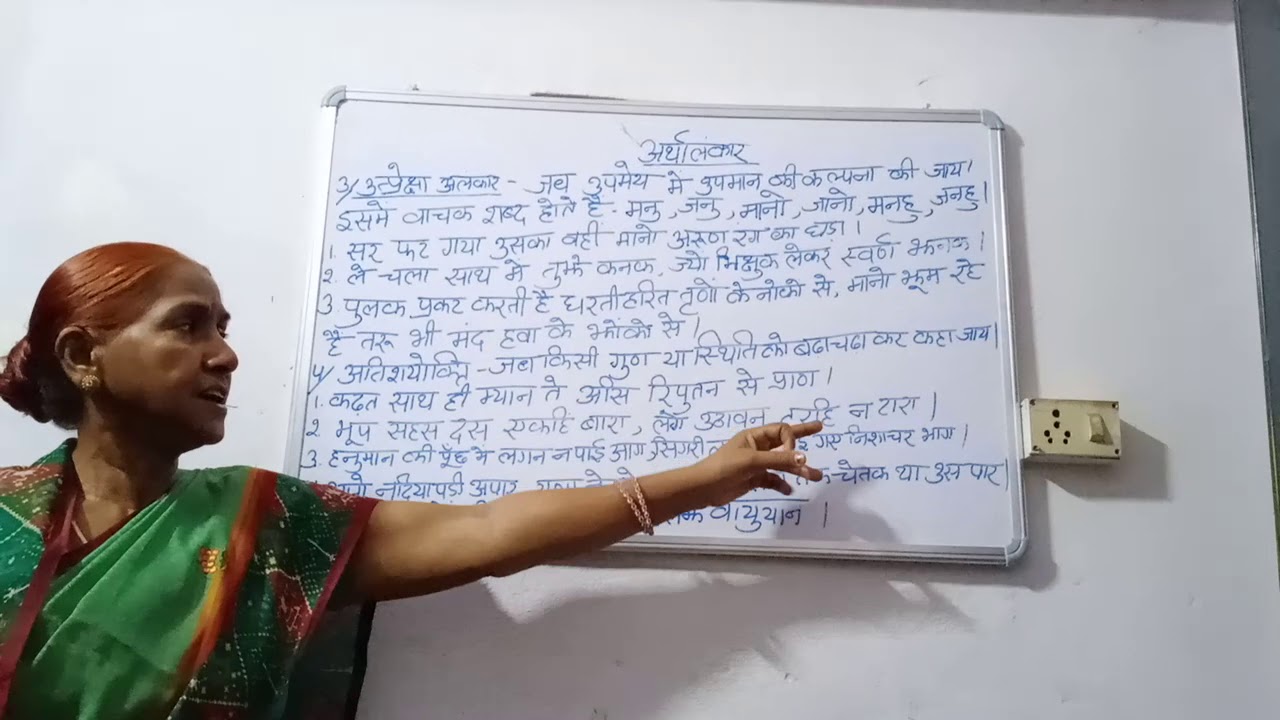 अर्थालंकार
3) उत्प्रेक्षा अलंकार - जब उपमेय में उपमान की कल्पना की जाय।
इसमें वाचक शब्द होते है - मनु, जनु, मानो, जानो, मनहु, जनहु।
1. सर फट गया उसका वही मानो अरूण रंग का घड़ा।
2. ले चला साथ में तुझे कनक, ज्यों भिक्षुक लेकर स्वर्ण झनक।
3. पुलक प्रकट करती है धरती हरित तृणों के नोको से, मानो झूम रहे
है तरू भी मंद हवा के झोंको से।
4) अतिशयोक्ति - जब किसी गुण या स्थिति को बढाचढा कर कहा जाय।
1. कढ़त साथ ही म्यान ते असि रिपुतन से प्राण।
2 भूप सहस दस एकहि बारा, लगे उठावन टरहि न टारा।
3. हनुमान की पूँछ में लगन न पाई आग, सिगरी गए निशाचर भाग।
नदिया पड़ी अपार चेतक था उस पार।
वायुयान।